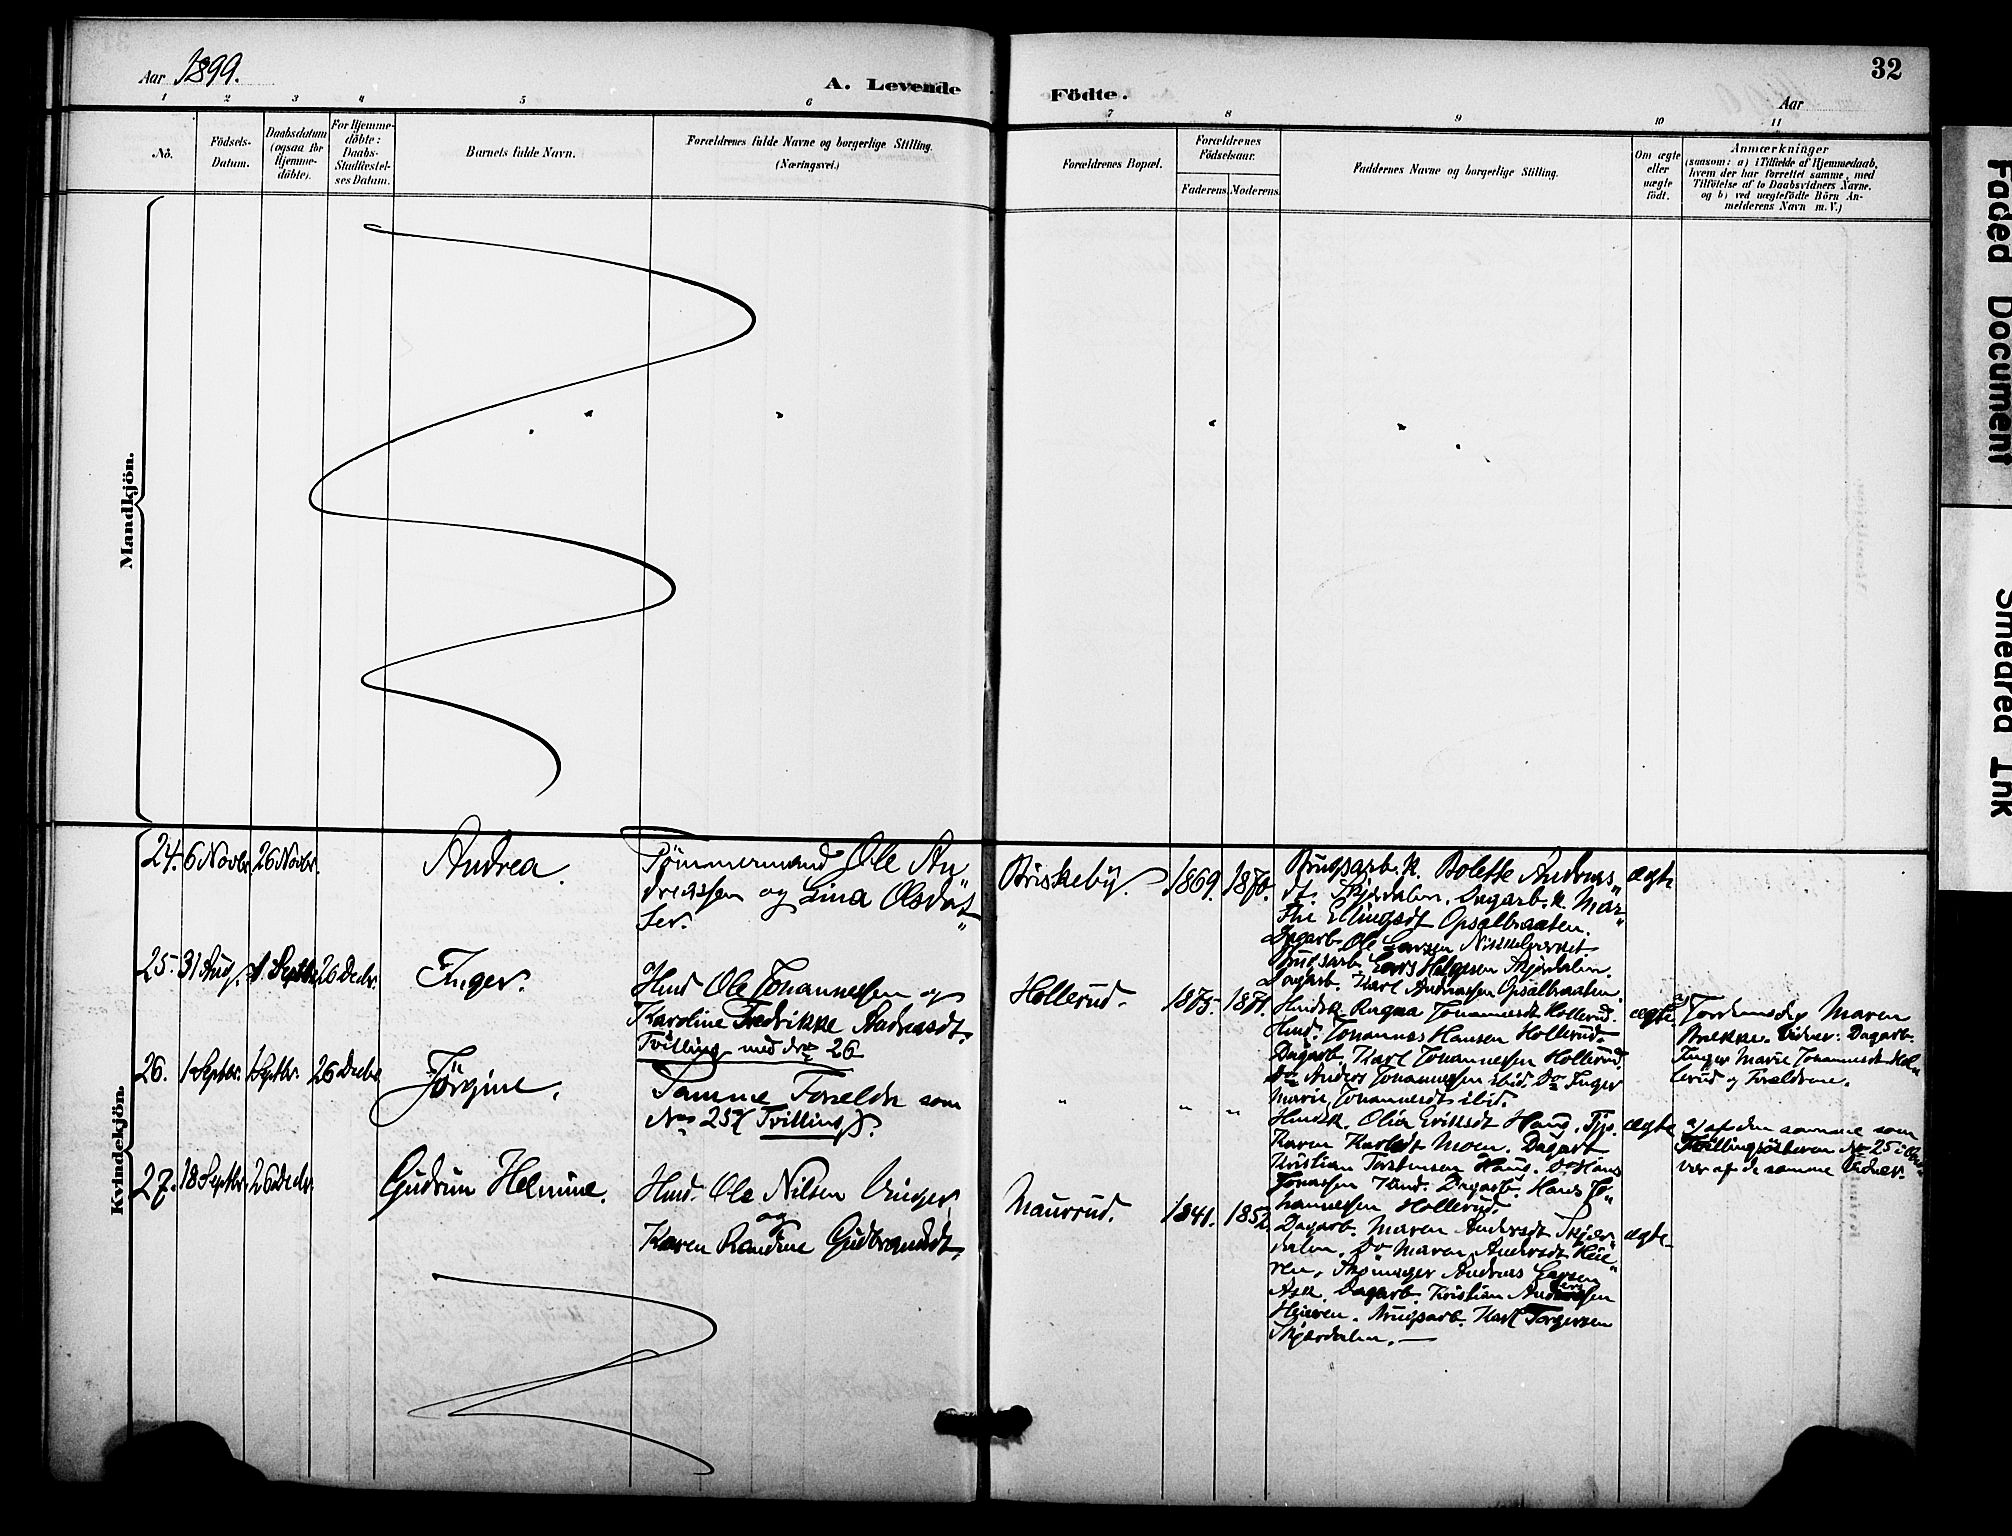 Aar 1899.
A. Levende
Födte.
32
Aar
1 2 3 4 5 6 7 8 9 10 11
Nô.
Födsels-
Datum.
Daabsdatum
(ogsaa for
Hjemme-
döbte).
For Hjemme-
döbte:
Daabs-
Stadfæstel-
ses Datum.
Barnets fulde Navn.
Forældrenes fulde Navne og borgerlige Stilling.
(Næringsvei.)
Forældrenes Bopæl.
Forældrenes
Födselsaar.
Faderens.
Moderens.
Faddernes Navne og borgerlige Stilling.
Om ægte
eller
uægte
födt.
Anmærkninger
(saasom: a) i Tilfælde af Hjemmedaab,
hvem der har forrettet samme, med
Tilföielse af to Daabsvidners Navne.
og b) ved uægtefödte Börn An-
melderens Navn m. V.)
Mandkjön.
Kvindekjön.
24. 6 Novbr. 26 Novbr.
Andrea.
Tömmermand Ole An-
dreassen og Lina Olsdat-
ter.
Briskeby. 1869. 1870.
Brugsarb. k. Bolette Andreas-
dt. Skjærdalen. Dagarb. k. Mar-
the Ellingsdt Opsalbraaten.
Dagarb. Ole Larsen Nikkelværket
Brugsarb. Lars Helgesen Skjærdalen.
Dagarb. Karl Andreassen Opsalbraaten.
ægte
25. 31 Aug. 1 Septbr. 26 Decbr.
Inger.
Husd. Ole Johannessen og
Karoline Fredrikke Andreasdt.
Tvilling med No 26
Hollerud. 1875. 1871.
Husdsk. Ragna Johannesdt Hollerud.
Husd. Johannes Hansen Hollerud.
Dagarb. Karl Johannessen Hollerud.
Do Anders Johannessen ibid. Do Inger
Marie Johannesdt ibid.
ægte.
a) Jordemoder Maren
Brekke. Vidner: Dagarb.
Inger Marie Johannesdt Hol-
lerud og Forældrene.
26. 1 Septbr. 1 Septbr. 26 Decbr
Jörgine.
Samme Forældre som
No 25 (Tvilling).
" " "
Husdsk. Olia Eriksdt Haug. Tjp.
Karen Karlsdt Moen. Dagarb.
Kristian Torstensen Haug. Do Hans
Jonassen Dagarb. Hans Jo-
hannessen Hollerud.
ægte
a) af den samme som
Tvillingsösteren No 25 i
vær af de samme Vidner.
27. 18 Septbr. 26 Decbr.
Gudrun Helmine.
Husd. Ole Nilsen Unger
og
Karen Randine Gudbrandsdt.
Maurrud. 1841. 1852
Dagarb. Maren Andersdt Skjær-
dalen. Do Maren Andersdt Heie-
ren. Skomager Andreas Larsen
Ask. Dagarb. Kristian Andersen
Heieren. Brugsarb. Karl Torgersen
Skjærdalen.
ægte
Faded Document
Smeared Ink